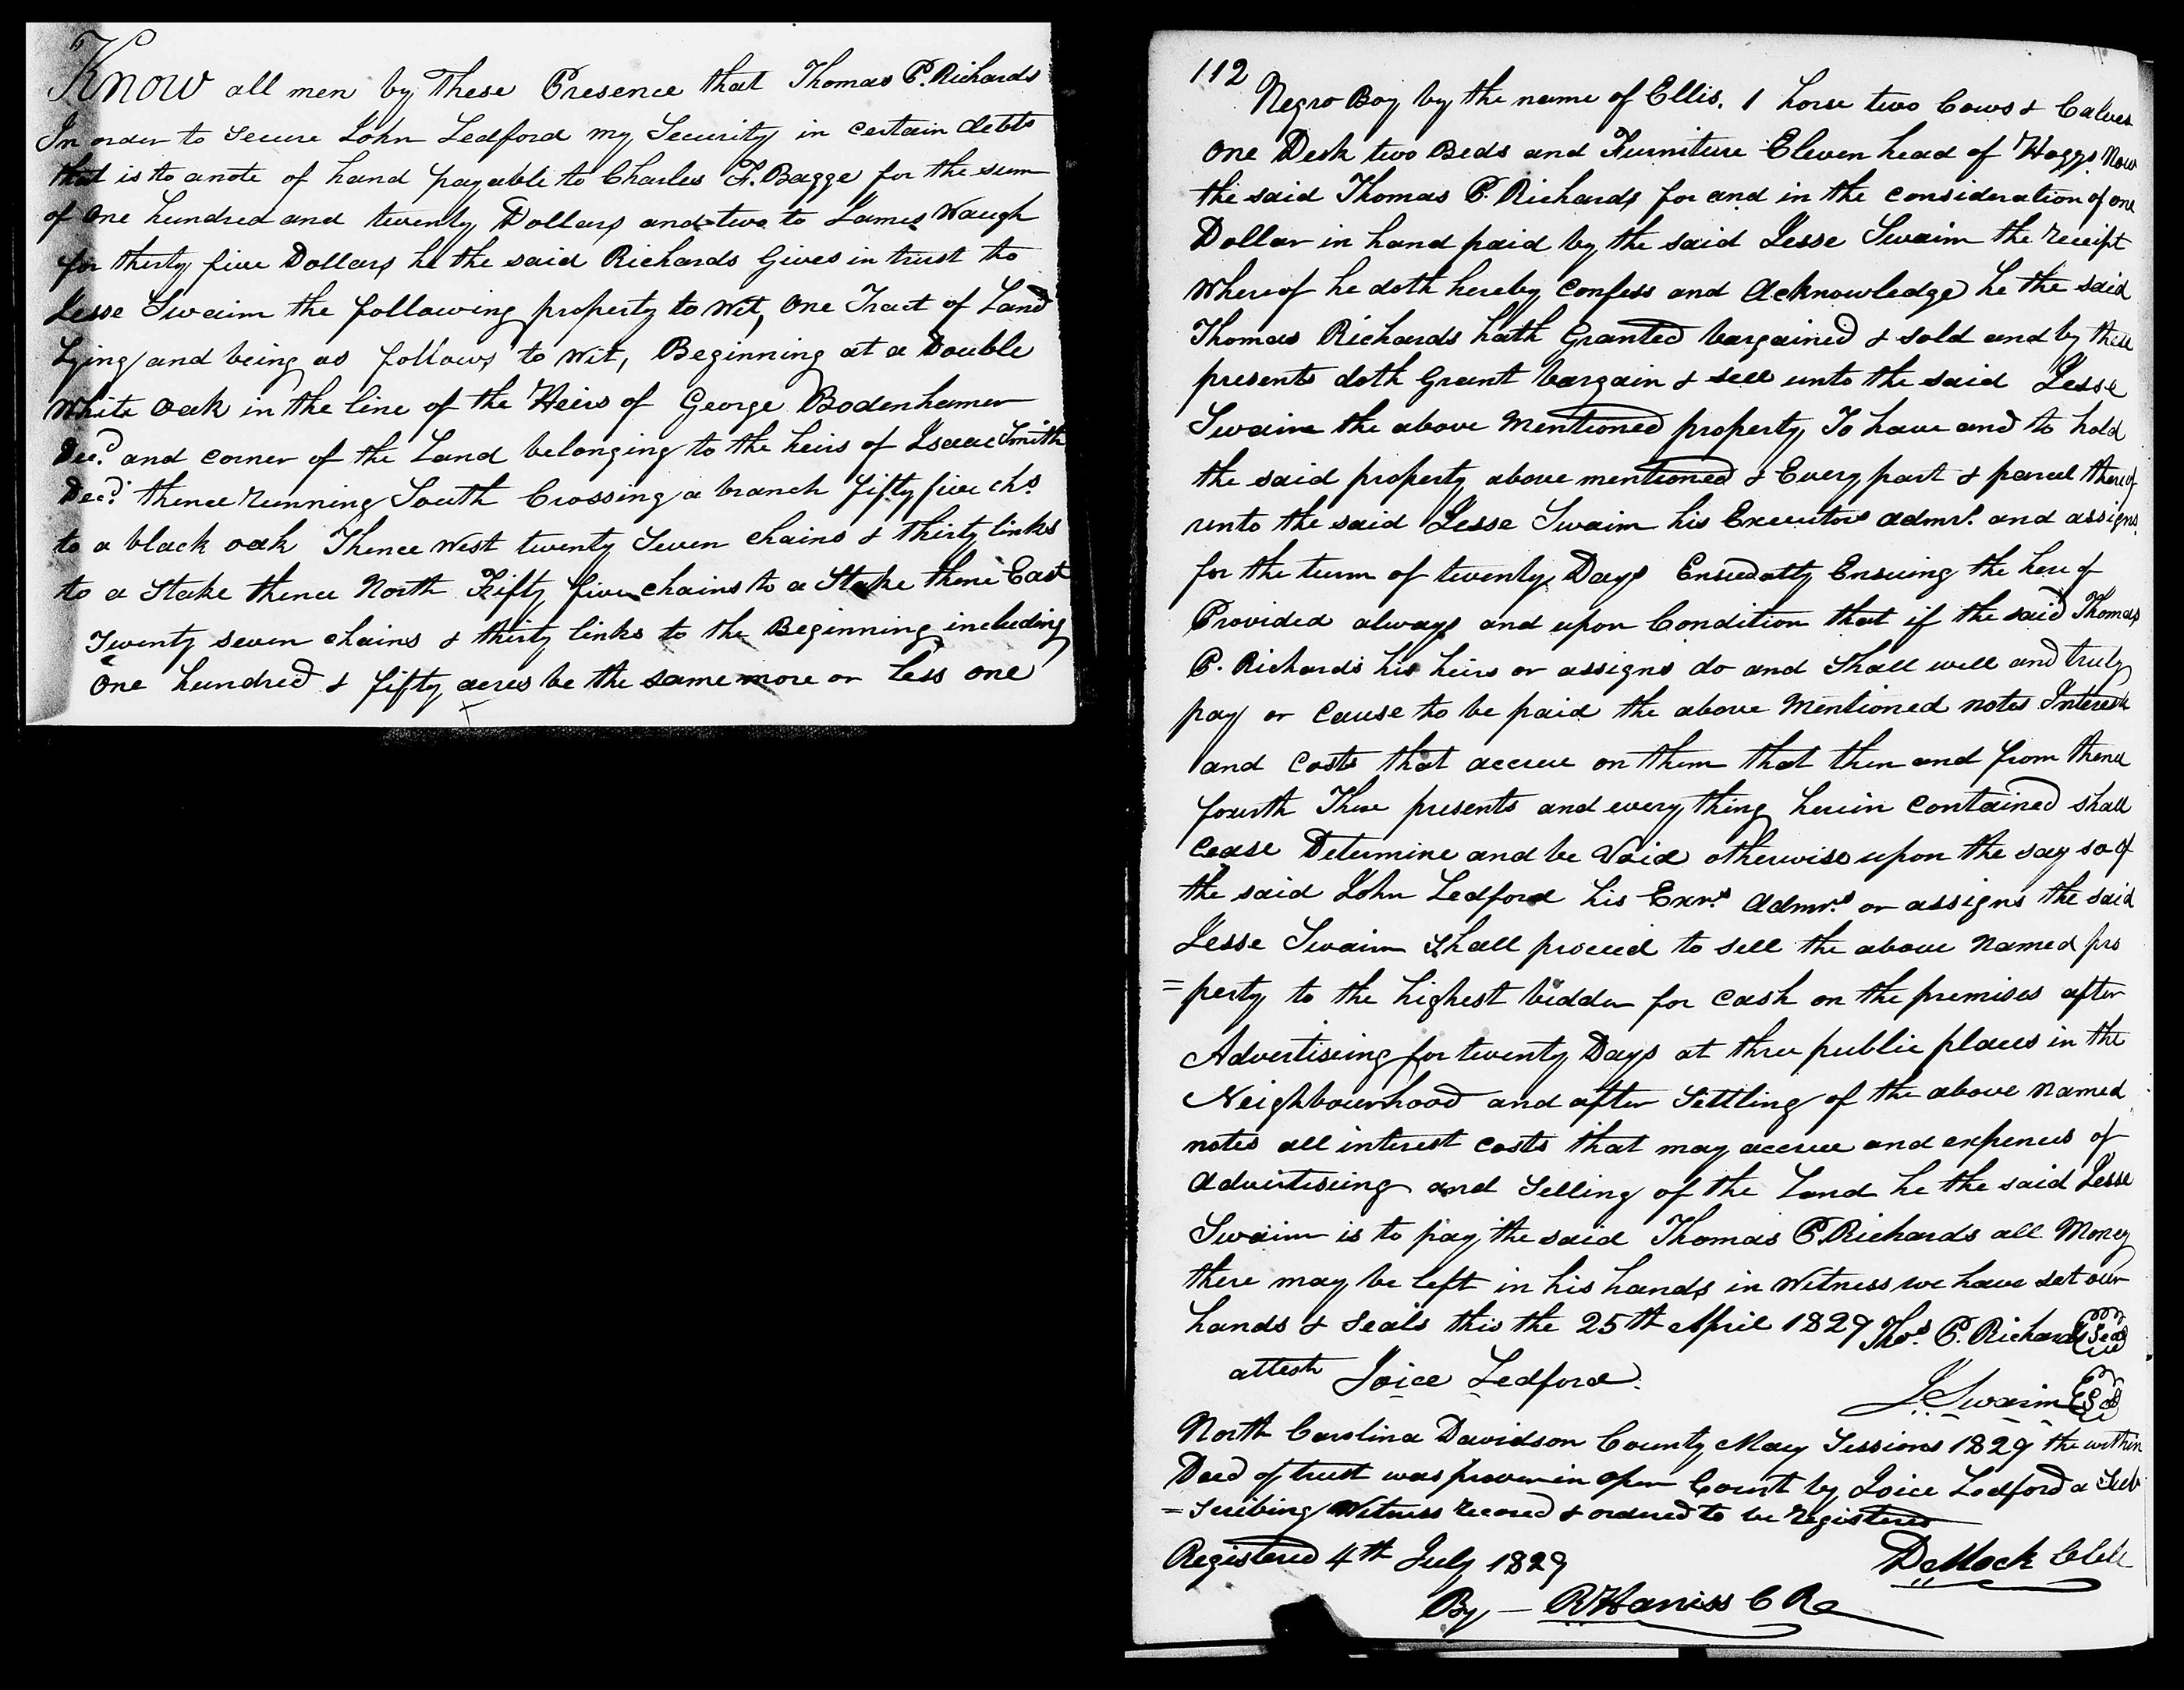 Know all men by These Presence that Thomas P. Richards
In order to secure John Ledford my Security in certain debts
that is to a note of hand payable to Charles F. Bagge for the sum
of One hundred and twenty Dollars and two to James Waugh
for thirty five Dollars he the said Richards Gives in trust to
Jesse Swaim the following property to wit, One Tract of Land
Lying and being as follows to wit, Beginning at a Double
White Oak in the line of the Heirs of George Bodenhamer
Decd. and corner of the Land belonging to the heirs of Isaac Smith
Decd. thence running South Crossing a branch fifty five chs.
to a black oak Thence West twenty Seven chains & thirty links
to a Stake thence North Fifty five chains to a Stake thence East
Twenty seven chains & thirty links to the Beginning including
One hundred & fifty acres be the same more or less one
112
Negro Boy by the name of Ellis. 1 horse two Cows & Calves
One Desk two Beds and Furniture Eleven head of Hoggs. Now
the said Thomas P. Richards for and in the consideration of one
Dollar in hand paid by the said Jesse Swaim the receipt
Whereof he doth hereby Confess and Acknowledge he the said
Thomas Richards hath Granted bargained & sold and by these
presents doth Grant bargain & sell unto the said Jesse
Swaim the above Mentioned property To have and to hold
the said property above mentioned & Every part & parcel thereof
unto the said Jesse Swaim his Executors admrs. and assigns
for the turm of twenty Days Ensuing the here of
Provided always and upon Condition that if the said Thomas
P. Richards his heirs or assigns do and Shall well and truly
pay or Cause to be paid the above Mentioned notes Interest
and Costs that accrue on them that then and from thence
fourth These presents and every thing herein Contained shall
Cease Determine and be Void otherwise upon the say so of
the said John Ledford his Exrs. Admrs. or assigns the said
Jesse Swaim Shall proceed to sell the above Named pro
=perty to the highest bidder for Cash on the premises after
Advertiseing for twenty Days at three public places in the
Neighbourhood and after Settling of the above named
notes all interest costs that may accrue and expences of
Advertiseing and Selling of the Land he the said Jesse
Swaim is to pay the said Thomas P. Richards all Money
there may be left in his hands in Witness we have set our
hands & Seals this the 25th April 1829 Thos. P. Richards Seal
attest Joice Ledford.
J. Swaim Seal
North Carolina Davidson County May Sessions 1829 the within
Deed of trust was proven in open Court by Joice Ledford a Sub
=scribing Witness record & ordered to be registered
Registered 4th July 1829
D. Mock Clk
By — R Harriss C R